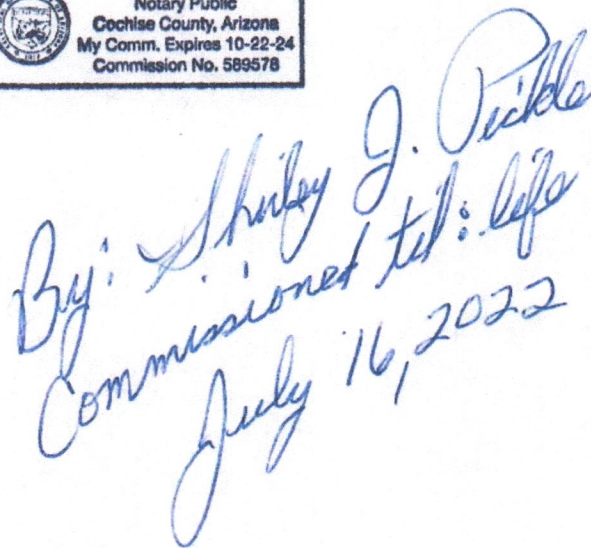 Notary Public
Cochise County, Arizona
My Comm. Expires 10-22-24
Commission No. 589578
By: Shirley J. Pickle
Commissioned til: life
July 16, 2022